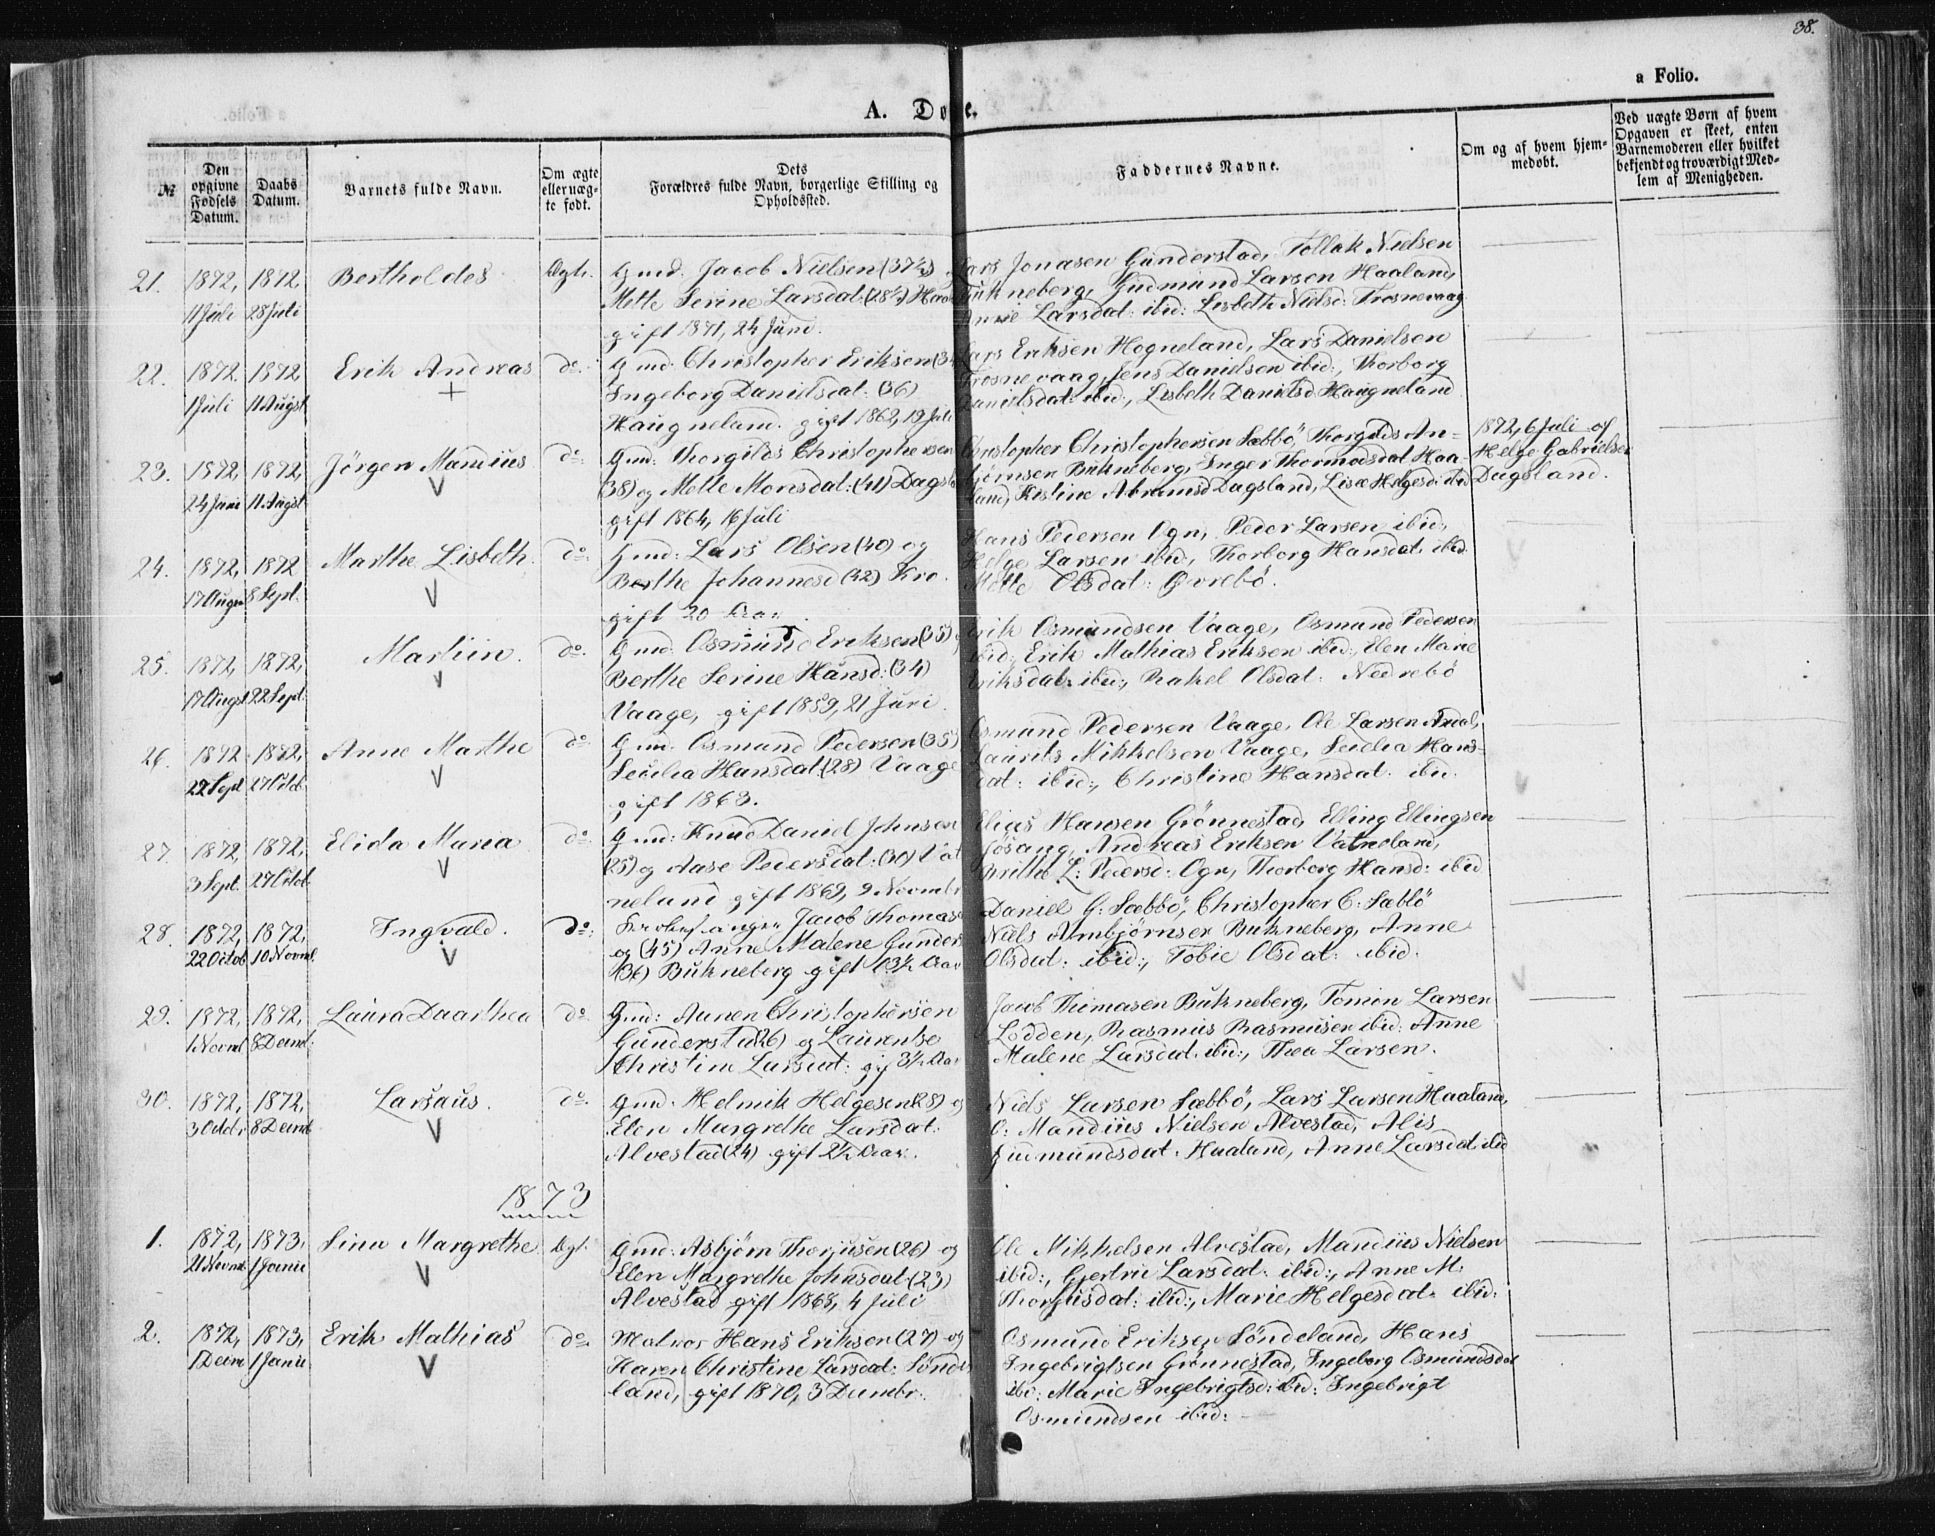 38.
a Folio.
A. Døbte.
№
Den opgivne Fødsels Datum.
Daabs Datum.
Barnets fulde Navn.
Om ægte eller uægte født.
Dets Forældres fulde Navn, borgerlige Stilling og Opholdssted.
Faddernes Navne.
Om og af hvem hjemmedøbt.
Ved uægte Børn af hvem Opgaven er skeet, enten Barnemoderen eller hvilket bekjendt og troværdigt Medlem af Menigheden.
21. 1872, 11 Juli 1872, 28 Juli Bertholdes Ægt.
Gmd. Jacob Nielsen (37½)
Mette Serine Larsdat: (28½)
gift 1871, 24 Juni.
Lars Jonasen Gunderstad, Tollak Nielsen
Bukneberg, Gudmund Larsen Haaland,
Anne Larsdat: ibid: Lisbeth Nielsd: Trosnevaag
22. 1872 1 Juli 1872 11 Augst Erik Andreas + do
Gmd. Christopher Eriksen (34
Ingeborg Danielsdat: (36)
Haugneland. gift 1862, 19 Juli
Lars Eriksen Hogneland, Lars Danielsen
Trosnevaag, Jens Danielsen ibid:, Thorborg
Danielsdat: ibid:, Lisbeth Danielsd Haugneland
23. 1872, 24 Juni 1872, 11 Augst Jörgen Mandius V do
Gmd: Thorgils Christophersen
(38) og Mette Monsdat: (41) Dagsl
gift 1864, 16 Juli
Christopher Christophersen Sæbbö, Thorgils An-
björnsen Bukneberg, Inger Thormodsdat Haa-
land, Kistine Abramsd Dagsland, Lise Helgesd: ibid
1872, 6 Juli af
Helge Gabrielsen
Dagsland.
24. 1872, 17 Augst 1872 8 Sept. Marthe Lisbeth. V do
Gmd: Lars Olsen (40) og
Berthe Johannesd (42) Kro.
gift 20 Aar.
Hans Pedersen Ogn, Peder Larsen ibid,
Helge Larsen ibid, Thorborg Hansdat ibid
Mette Olsdat: Øvrebö.
25. 1872, 17 Augst 1872, 22 Sept. Martiin. V do
Gmd. Osmund Eriksen (35)
Berthe Serine Hansd: (34)
Vaage, gift 1859, 21 Juni.
Erik Osmundsen Vaage, Osmund Pedersen
ibid:, Erik Mathias Eriksen ibid:, Elen Marie
Eriksdat: ibid:, Rakel Olsdat: Nedrebö
26. 1872 22 Sept 1872 27 Octb Anne Marthe V do
Gmd. Osmund Pedersen (35)
Secilia Hansdat: (28) Vaage
gift 1863.
Osmund Pedersen Vaage, Ole Larsen Andal,
Laurits Mikkelsen Vaage, Secilia Hans-
dat: ibid:, Christine Hansdat: ibid.
27. 1872, 3 Sept. 1872, 27 Octob Elida Maria V do
Gmd: Knud Daniel Johnsen
(25) og Aase Pedersdat: (30) Vat
neland gift 1869, 9 Novembr
Elias Hansen Grönnestad, Elling Ellingsen
Jøsang, Andreas Eriksen Vatneland,
Brithe L: Pedersd: Ogn, Thorborg Hansd: ibid
28. 1872, 22 Octob 1872, 10 Novmb Ingvald. V do
Jacob Thomasen
og (45) Anne Malene Gunders
(36) Bukneberg gift 13½ Aar
Daniel G: Sæbbö, Christopher C: Sæbbö
Niels Arnbjörnsen Bukneberg, Anne
Olsdat: ibid:, Tobie Olsdat: ibid.
29. 1872, 1 Novmb 1872, 8 Decmb: Laura Daarthea do
Gmd: Aanen Christophersen
Gunderstad (26) og Laurentse
Christine Larsdat: gif 3½ Aar
Jacob Thomasen Bukneberg, Tomin Larsen
Lodden, Rasmus Rasmusen ibid: Anne
Malene Larsdat: ibid:, Thea Larsen.
30. 1872, 3 Octbr 1872, 8 Decmb Larsaus. V do
Gmd. Helmik Helgesen (28) og
Elen Margrethe Larsdat:
Alvestad (24) gift 2½ Aar.
Niels Larsen Sæbbö, Lars Larsen Haaland,
O: Mandius Nielsen Alvestad, Alis
Gudmundsdat. Haaland, Anne Larsdat ibid
1873
1. 1872, 21 Novmb 1873, 1 Janu Sina Margrethe V Ægt.
Gmd: Asbjörn Thorjusen (26) og
Elen Margrethe Johnsdat: (23)
Alvestad gift 1868, 4 Juli
Ole Mikkelsen Alvestad, Mandius Nielsen
ibid:, Gjertrue Larsdat: ibid:, Anne M:
Thorjusdat: ibid:, Marie Helgesdat: ibid:
2. 1872, 1 Decm 1873, 1 Janu Erik Mathias V do
Matros Hans Eriksen (27) og
Karen Christine Larsdat: Sönde
land, gift 1870, 3 Decmbr.
Osmund Eriksen Söndeland, Hans
Ingebrigtsen Grönnestad, Ingeborg Osmundsdat
ibd: Marie Ingebrigtsd: ibid: Ingebrigt
Osmundsen ibid: